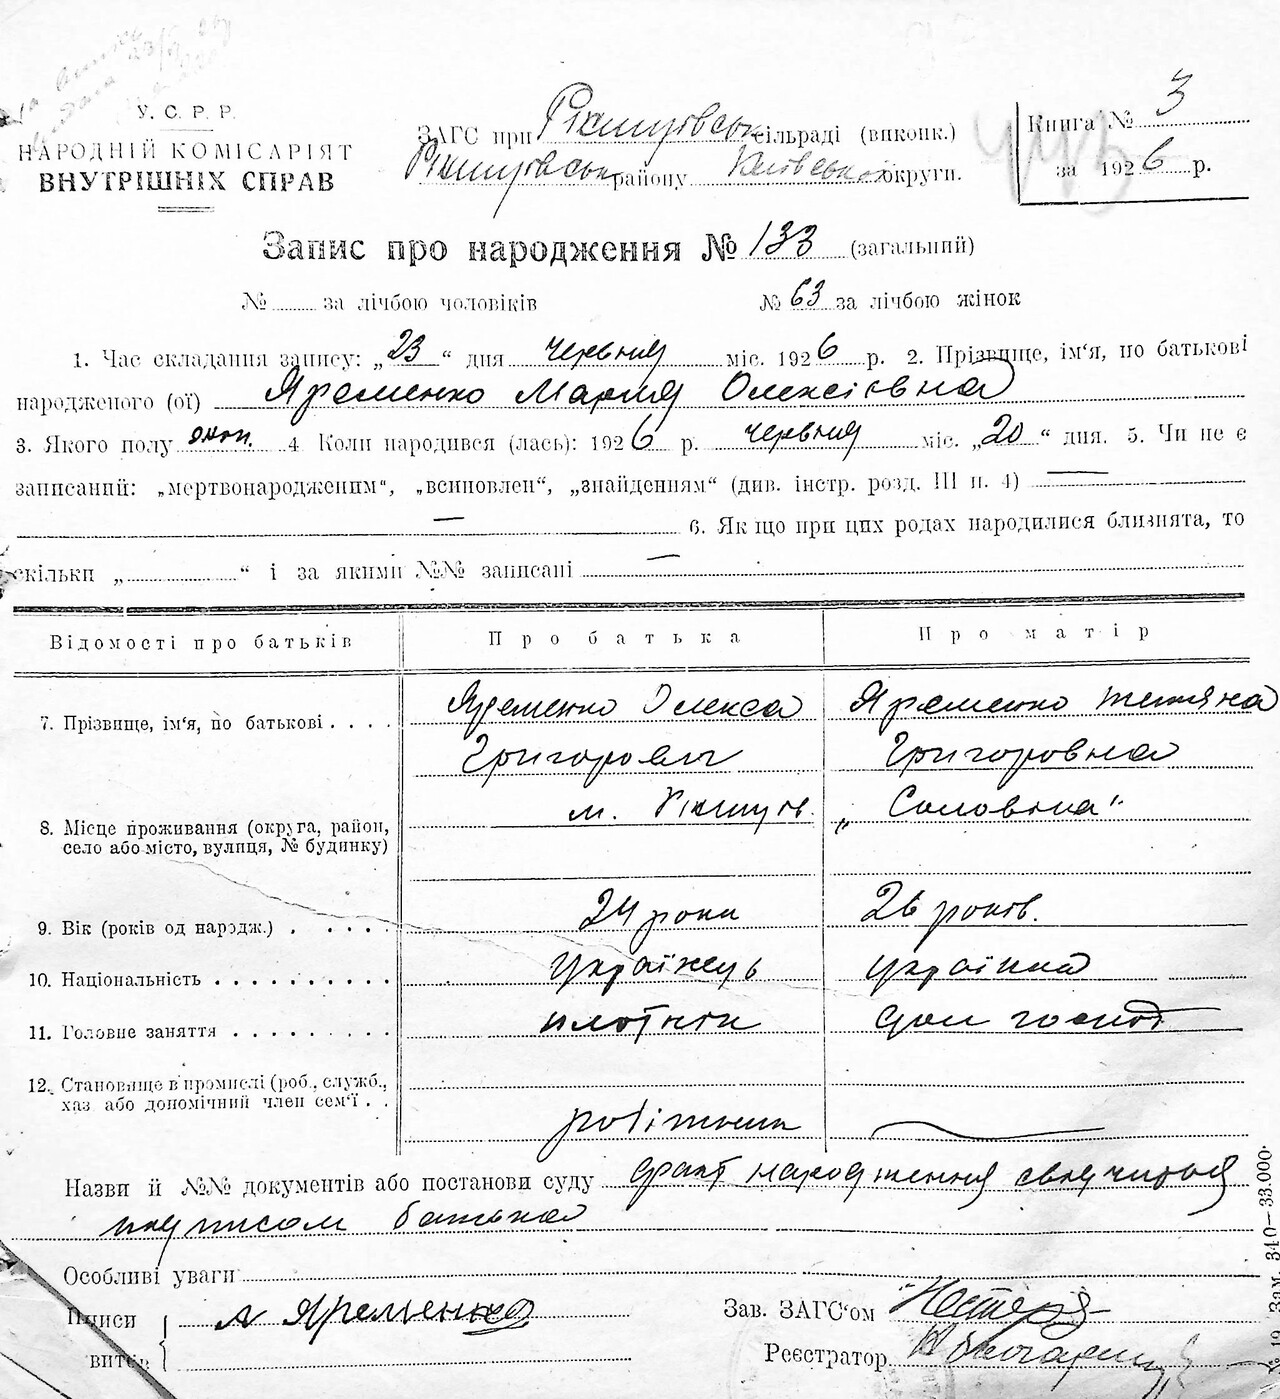 У. С. Р. Р.
НАРОДНІЙ КОМІСАРІЯТ
ВНУТРІШНІХ СПРАВ
ЗАГС при Ржищівськ сільраді (виконк.)
Ржищівськ району Київської округи.
Книга № 3
за 1926 р.
Запис про народження № 133 (загальний)
№ за лічбою чоловіків № 63 за лічбою жінок
1. Час складання запису: „23“ дня червня міс. 1926 р. 2. Прізвище, ім‘я, по батькові
народженого (ої) Яременко Мария Олексіївна
3. Якого полу жон. 4 Коли народився (лась): 1926 р. червня міс. „20“ дня. 5. Чи не є
записаний: „мертвонародженим“, „всиновлен“, „знайденням“ (див. інстр. розд. III п. 4) —
— 6. Якщо при цих родах народилися близнята, то
скільки „ “ і за якими №№ записані —
Відомості про батьків Про батька Про матір
7. Прізвище, ім‘я, по батькові . . . . Яременко Олекса Яременко Тетяна
Григорович Григоровна
м. Ржищів. „Соловіка"
8. Місце проживання (округа, район,
село або місто, вулиця, № будинку)
9. Вік (років од народж.) . . . . . 24 роки 26 років.
10. Національність . . . . . . . . . . українець українка
11. Головне заняття . . . . . . . . . плотнік дом господ
12. Становище в промислі (роб., служб.,
хаз або допомічний член сем‘ї . .
робітник
Назви й №№ документів або постанови суду факт народження свідчиться
підписом батька
Особливі уваги
Підписи Яременко Зав. ЗАГС‘ом
витів Реєстратор
№ 19 Зам. 340—33.000.